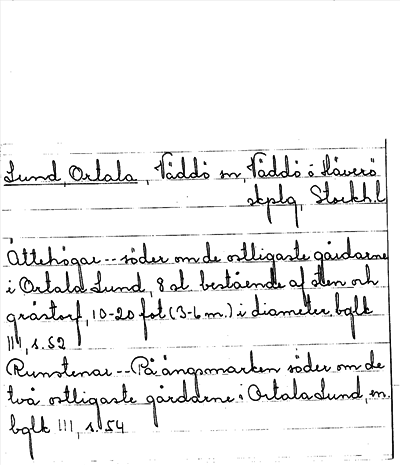 Lund, Ortala, Väddö sn, Väddö o Häverö
skplg, Stockh.l
Ättehögar -- söder om de ostligaste gårdarne
i Ortala Lund, 8 st. bestående af sten och
grästorf, 10-20 fot (3-6 m.) i diameter, bglk
III, s. 52
Runstenar -- På ängsmarken söder om de
två ostligaste gårdarne i Ortala Lund, en.
bglk III, s. 54